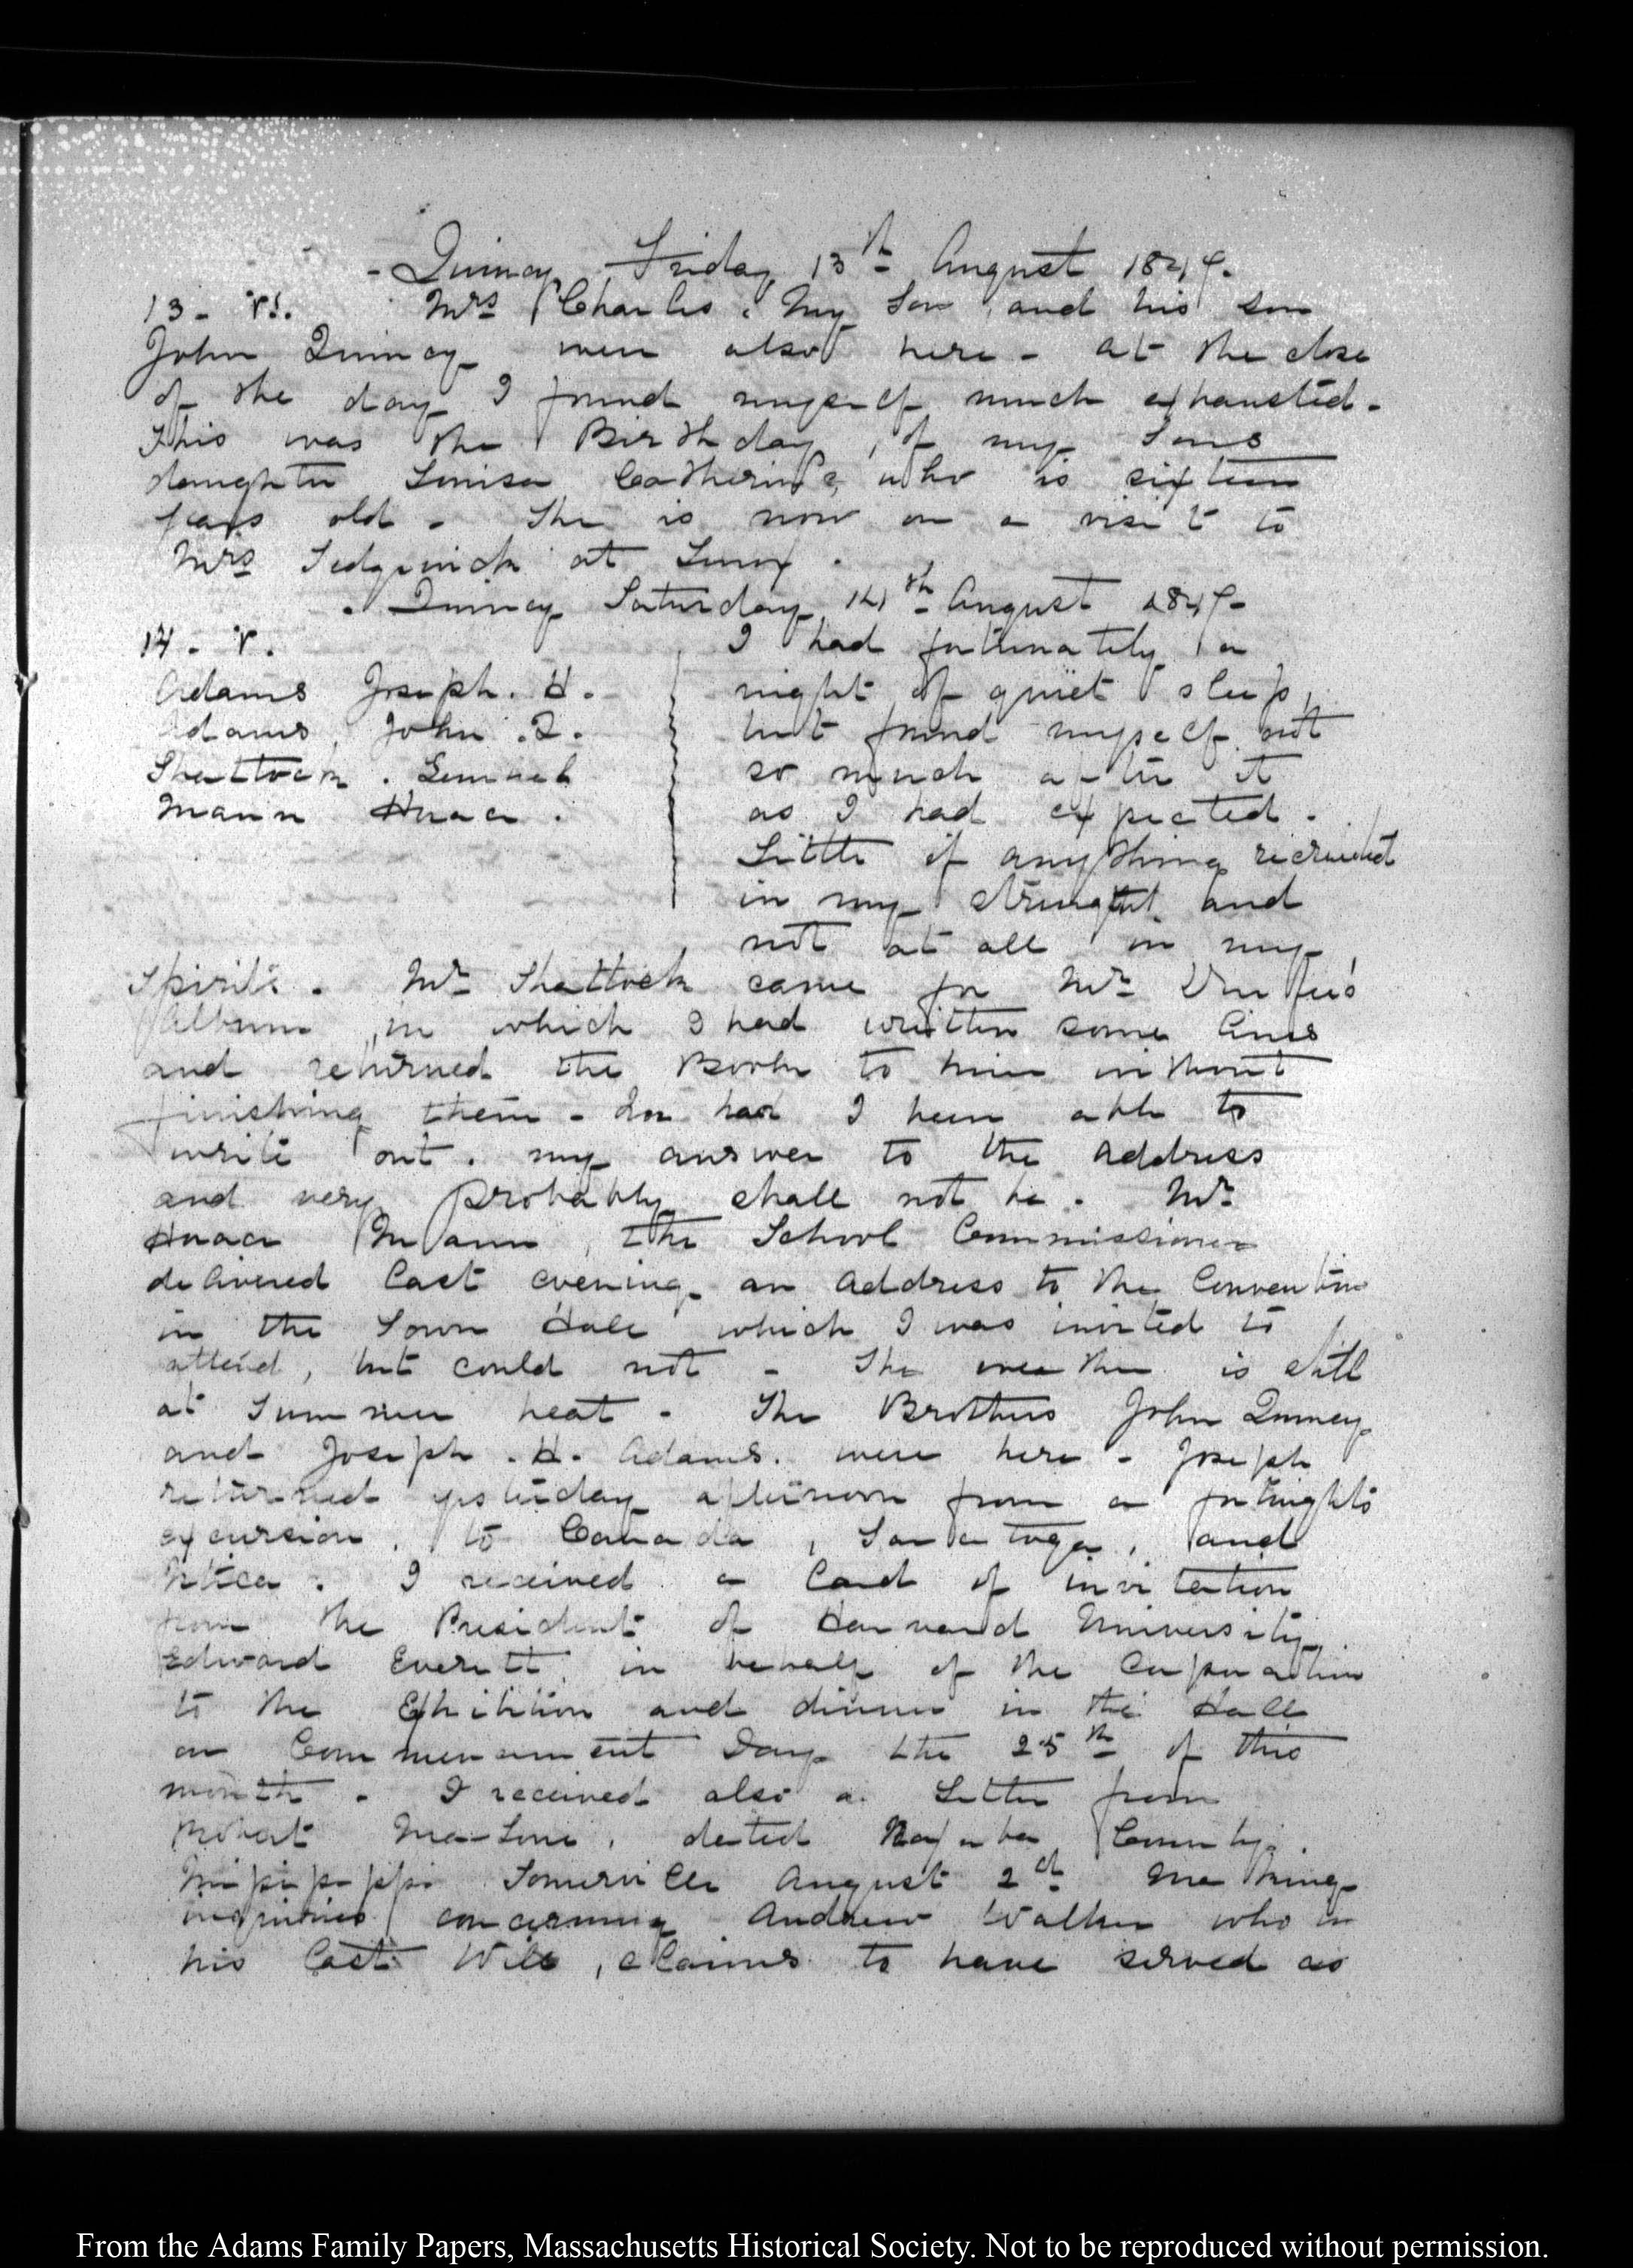 - Quincy Friday 13th August 1847.
13. VI. Mrs Charles. My Son, and his son
John Quincy were also here - at the close
of the day I found myself much exhausted.
This was the Birthday, of my Sons
daughter Louisa Catherine, who is sixteen
years old. She is now on a visit to
Mrs Sedgwick at Lenox.
. Quincy Saturday 14th August 1847.
14. V. I had fortunately a
Adams Joseph. H. night of quiet sleep,
Adams, John. Q. but found myself not
Shattock. Lemuel so much after it
Mann Horace. as I had expected.
Little if anything recruited
in my strength and
not at all in my
Spirits. Mr Shattock came for Mr
Album, in which I had written some lines
and returned the Book to him without
finishing them - Nor had I been able to
write out. my answer to the Address
and very probably shall not be. Mr
Horace Mann, the School Commissioner
delivered last evening an Address to the Convention
in the Town Hall which I was invited to
attend, but could not - The weather is still
at Summer heat - The Brothers John Quincy
and Joseph. H. Adams. were here - Joseph
returned yesterday afternoon from a fortnights
excursion, to Canada, Saratoga, and
Utica. I received a Card of invitation
from the President of Harvard University,
Edward Everett, in behalf of the Corporation
to the Exhibition and dinner in the Hall
on Commencement Day the 25th of this
month. I received also a Letter from
Robert dated County.
Missisippi Somerville August 2d making
inquiries concerning Andrew Walker who in
his last Will, claims to have served as
From the Adams Family Papers, Massachusetts Historical Society. Not to be reproduced without permission.